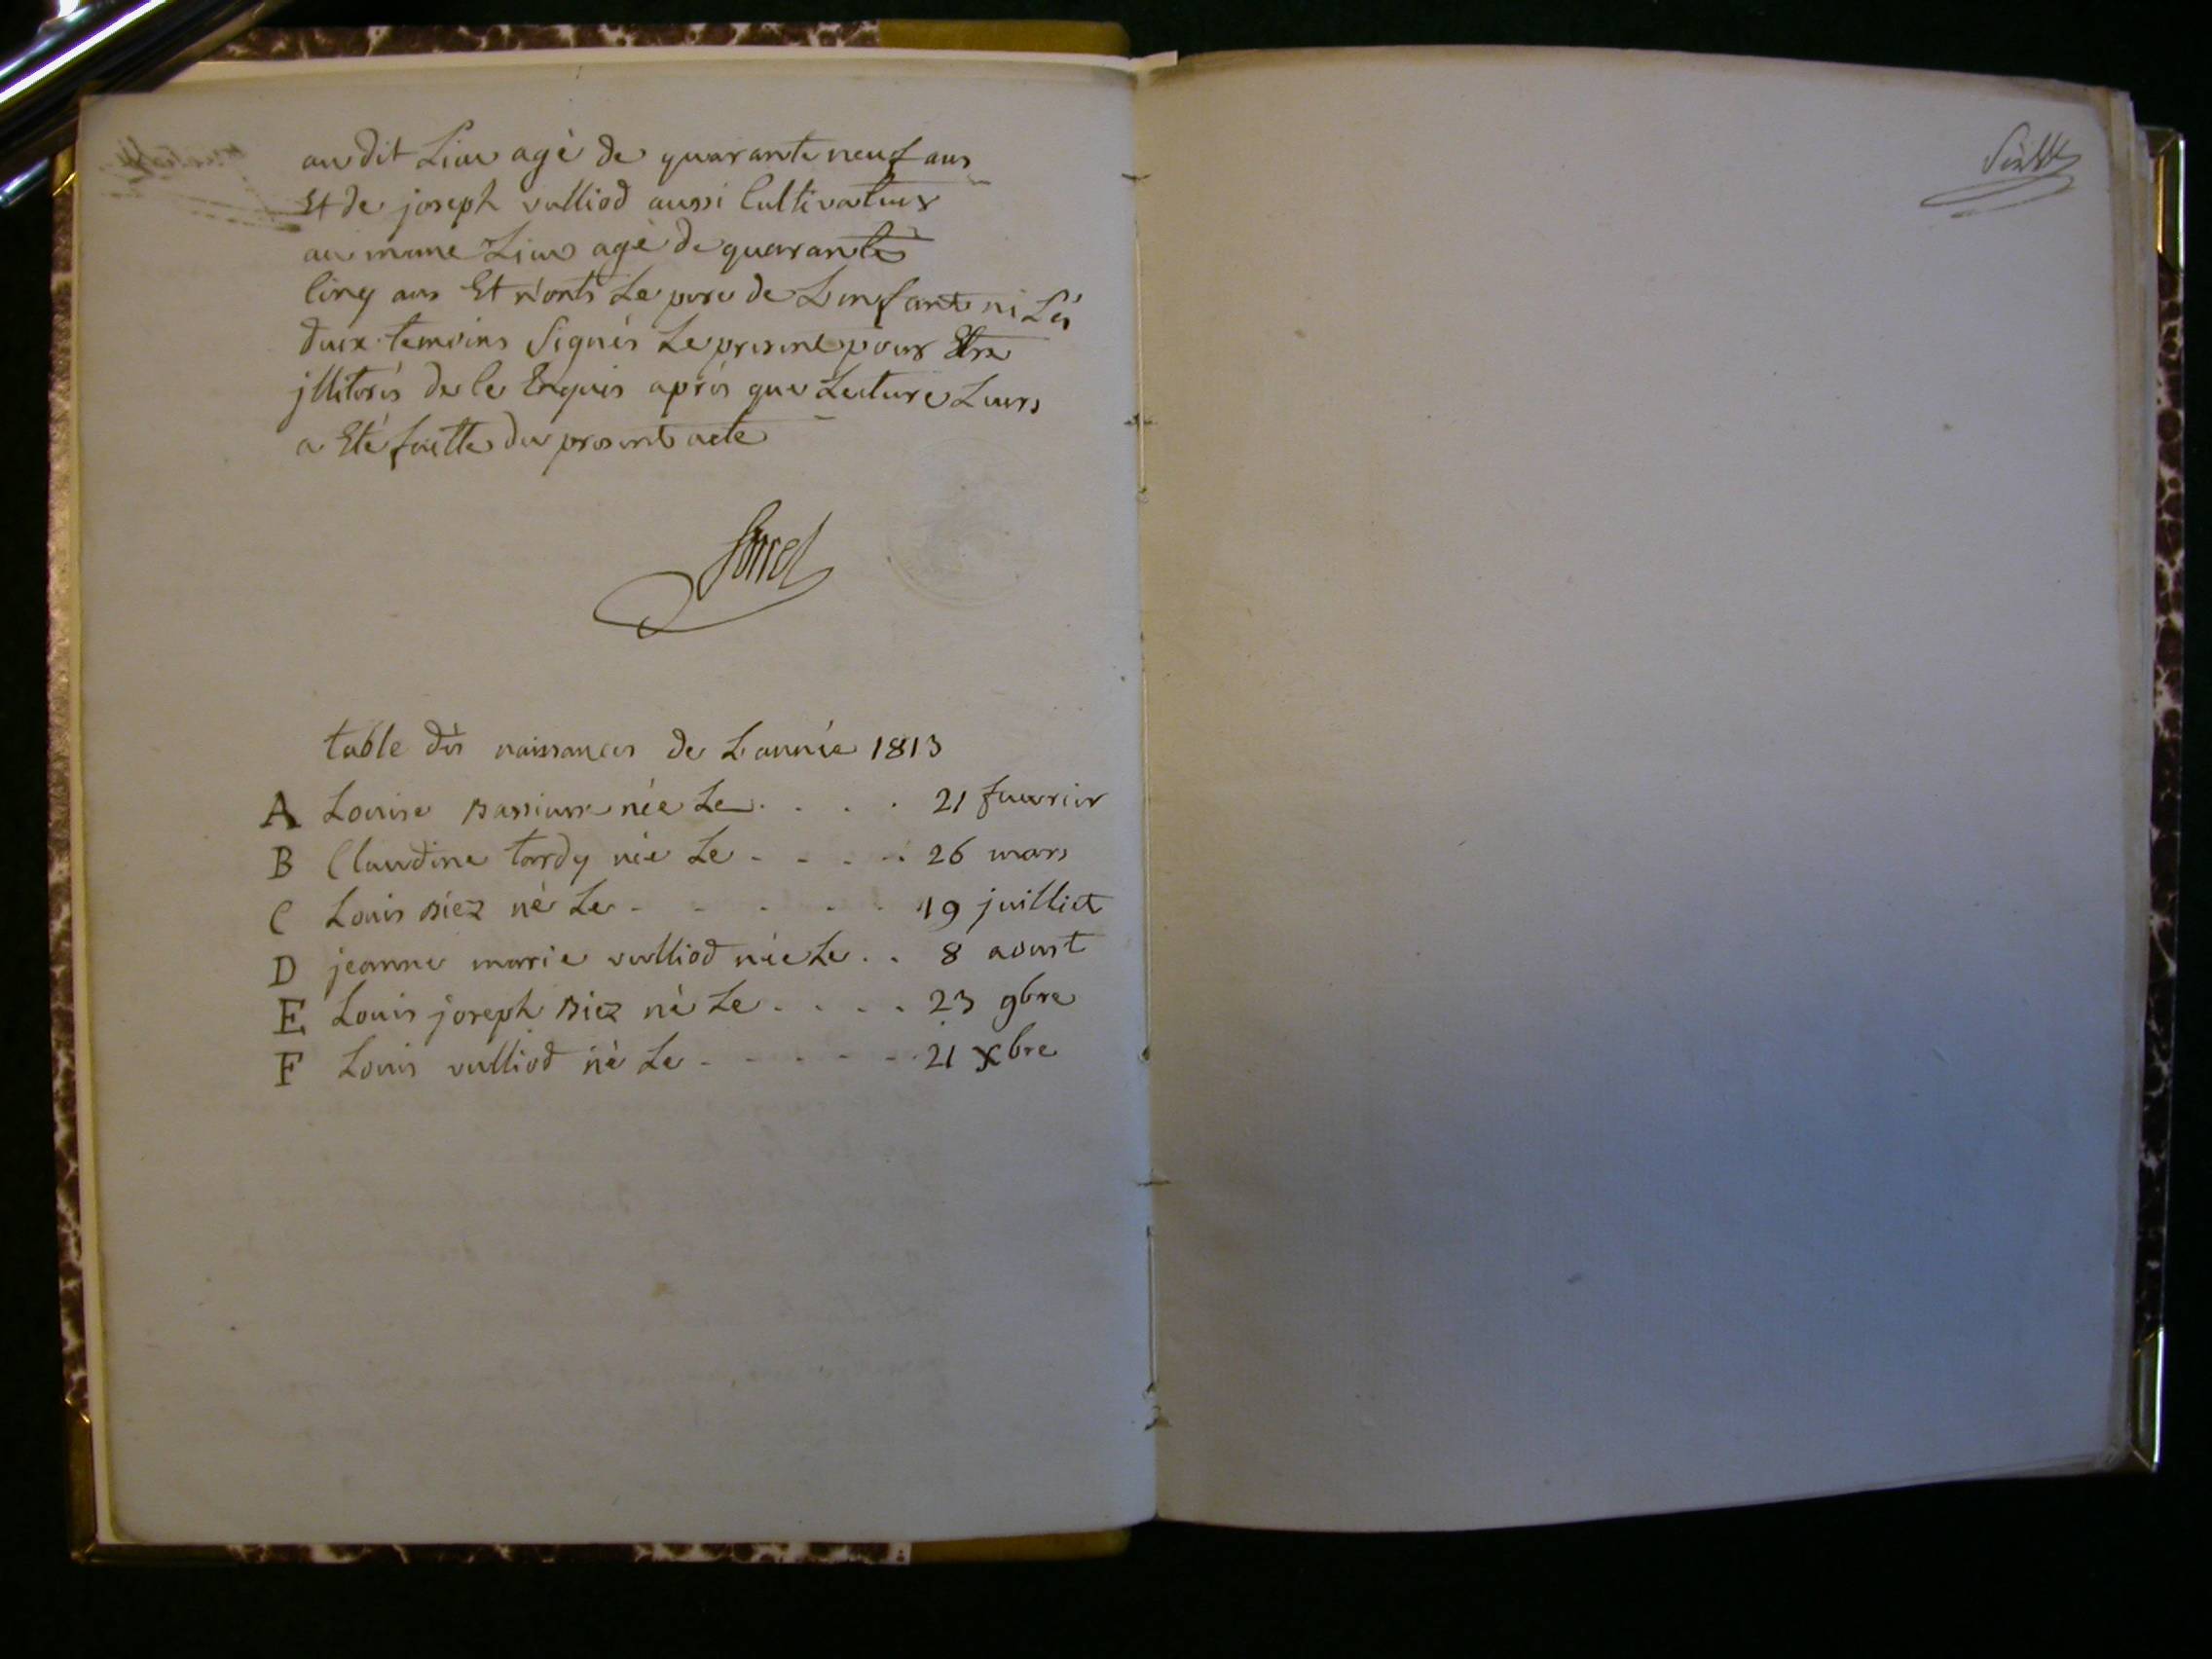 au dit Lieu agé de quarante neuf ans
Et de joseph vulliod aussi Cultivateur
au meme Lieu agé de quarante
Cinq ans Et n'onts Le pere de Lenfant ni Lés
deux temoins Signés Le present pour Etre
jlliterés de Ce Enquis aprés que Lecture Leurs
a Eté faitte du present acte
Sorrel
table dés naissances de Lannée 1813
A Louise née Le . . . . 21 fuevrier
B Claudine tardy née Le - - - - 26 mars
C Louis Biez né Le - - - - - 19 juilliet
D jeanne marie vulliod née Le . . 8 aoust
E Louis joseph Biez né Le . . . . 23 9bre
F Louis vulliod né Le - - - - - 21 xbre